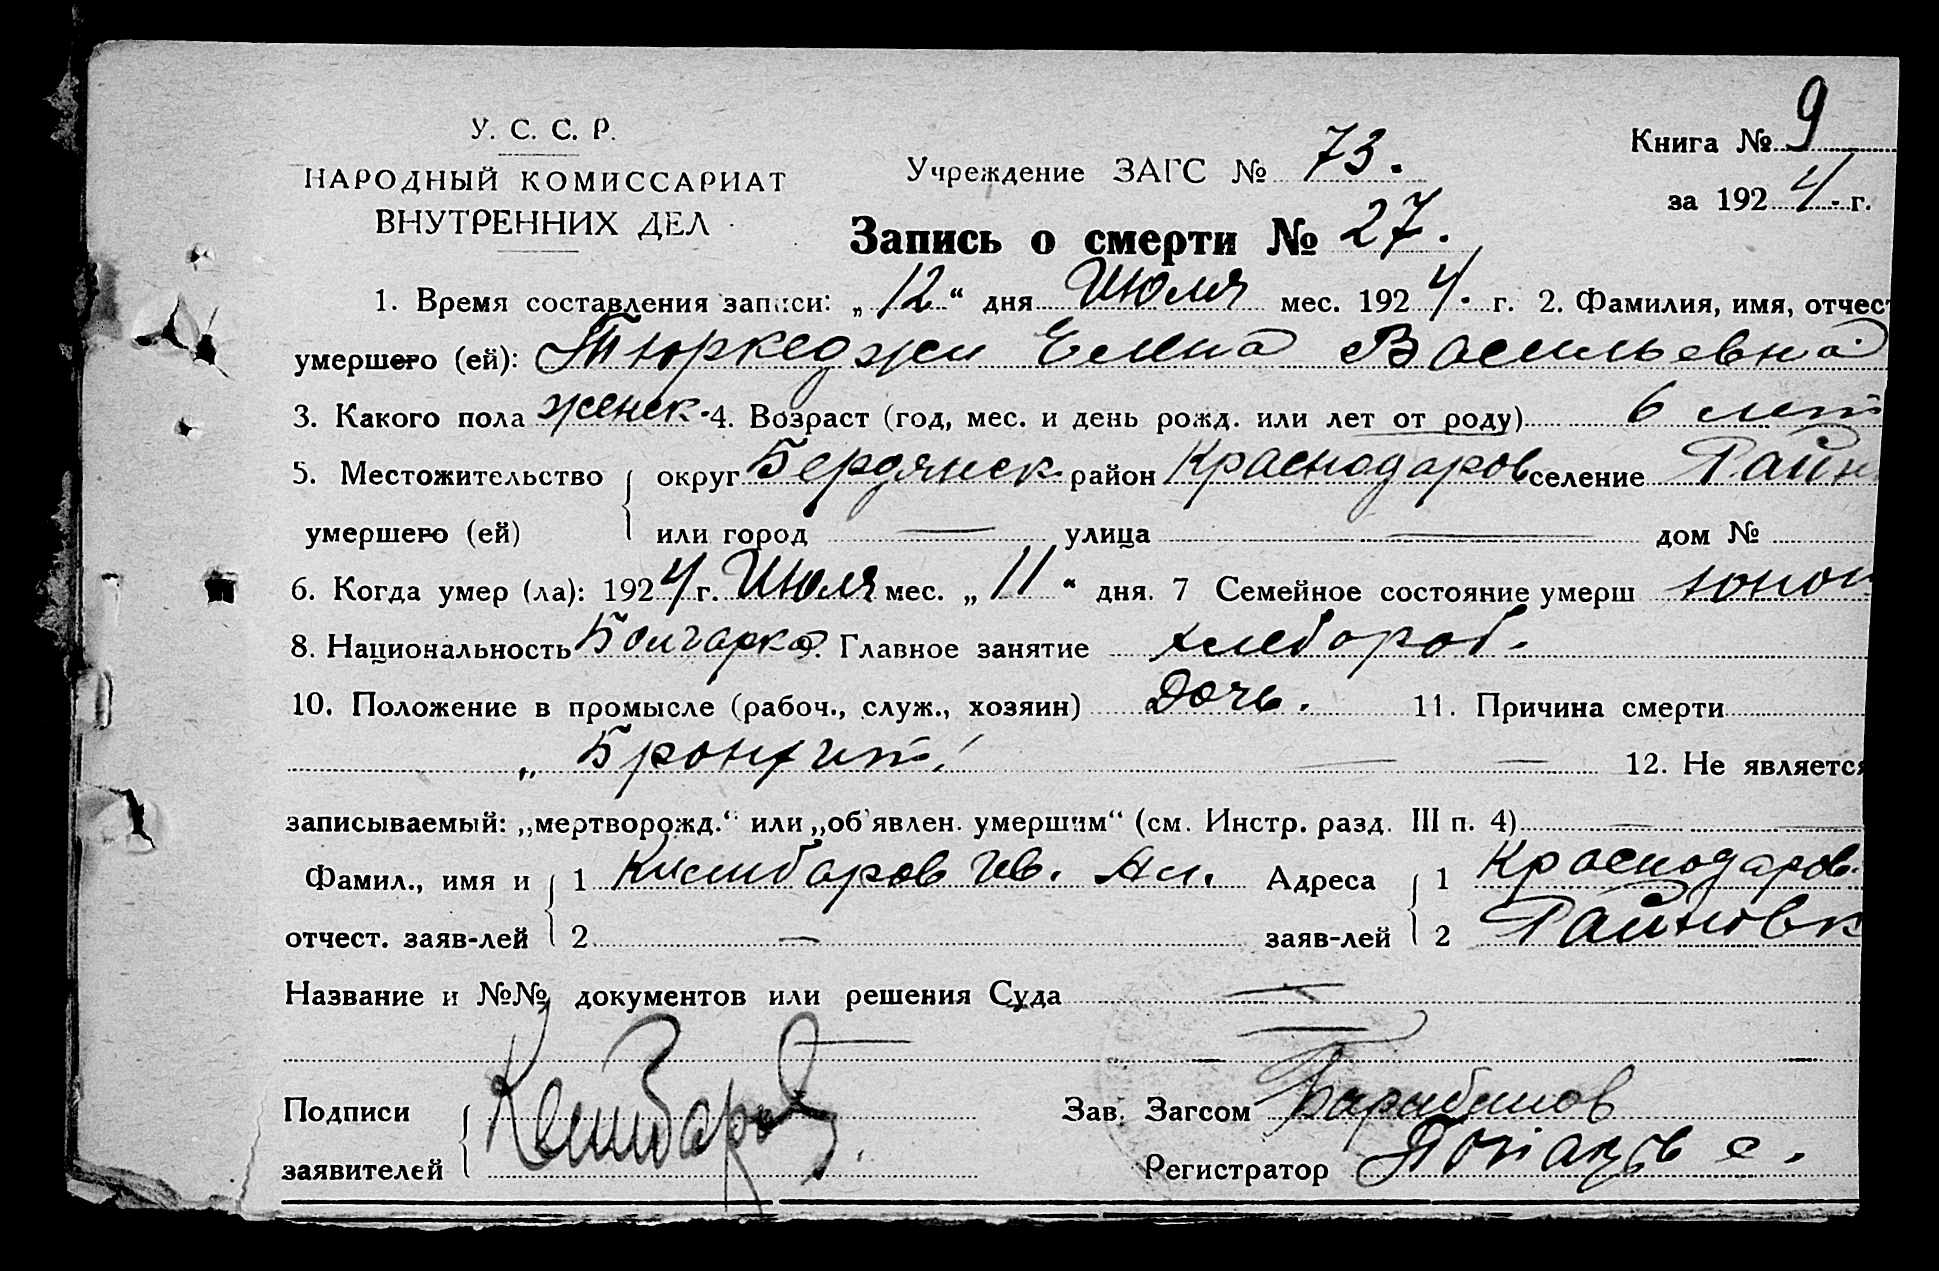 У. С. С. Р.
НАРОДНЫЙ КОМИССАРИАТ
ВНУТРЕННИХ ДЕЛ
Учреждение ЗАГС № 73.
Книга № 9
за 1924. г.
Запись о смерти № 27.
1. Время составления записи: „12“ дня Июля мес. 1924. г. 2. Фамилия, имя, отчест
умершего (ей): Тюркеджи Елена Васильевна
3. Какого пола женск. 4. Возраст (год, мес. и день рожд. или лет от роду) 6 лет
5. Местожительство округ Бердянск. район Краснодаров селение Райн
умершего (ей) или город — улица — дом №
6. Когда умер (ла): 1924 г. Июля мес. „11“ дня. 7 Семейное состояние умерш
8. Национальность Болгарка. Главное занятие хлебороб.
10. Положение в промысле (рабоч., служ., хозяин) Дочь. 11. Причина смерти
„Бронхит“ — — 12. Не является
записываемый: „мертворожд.“ или „об'явлен. умершим“ (см. Инстр. разд. III п. 4) —
Фамил., имя и 1 Килибаров Ив. Ал. Адреса 1 Краснодаров.
отчест. заяв-лей 2 — заяв-лей 2 Райновк
Название и №№ документов или решения Суда —
Подписи Зав. Загсом
заявителей Регистратор